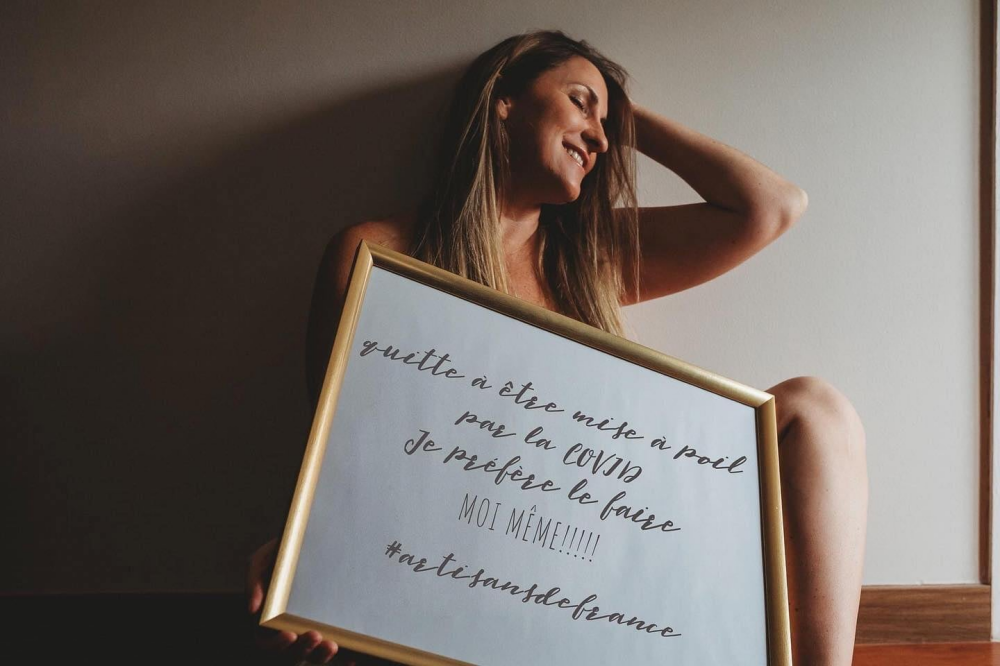 quitte à être mise à poil
par la COVID
Je préfère le faire
MOI MÊME!!!!!
#artisansdefrance